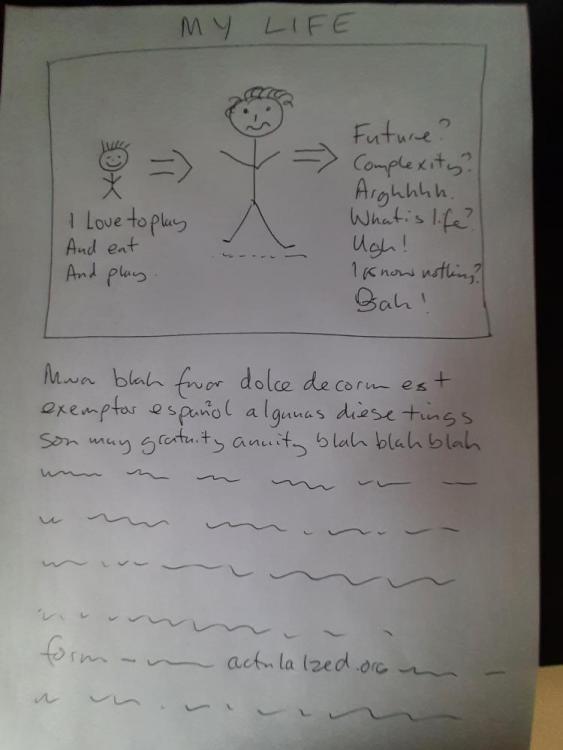 MY LIFE
I Love to play
And eat
And play.
Future?
Complexity?
Arghhhh.
What is life?
Ugh!
I know nothing?
Bah!
Mwa blah fuor dolce decorum est
exemptor español algunas diese tings
son muy gratuity anuity blah blah blah
form actulalzed.org